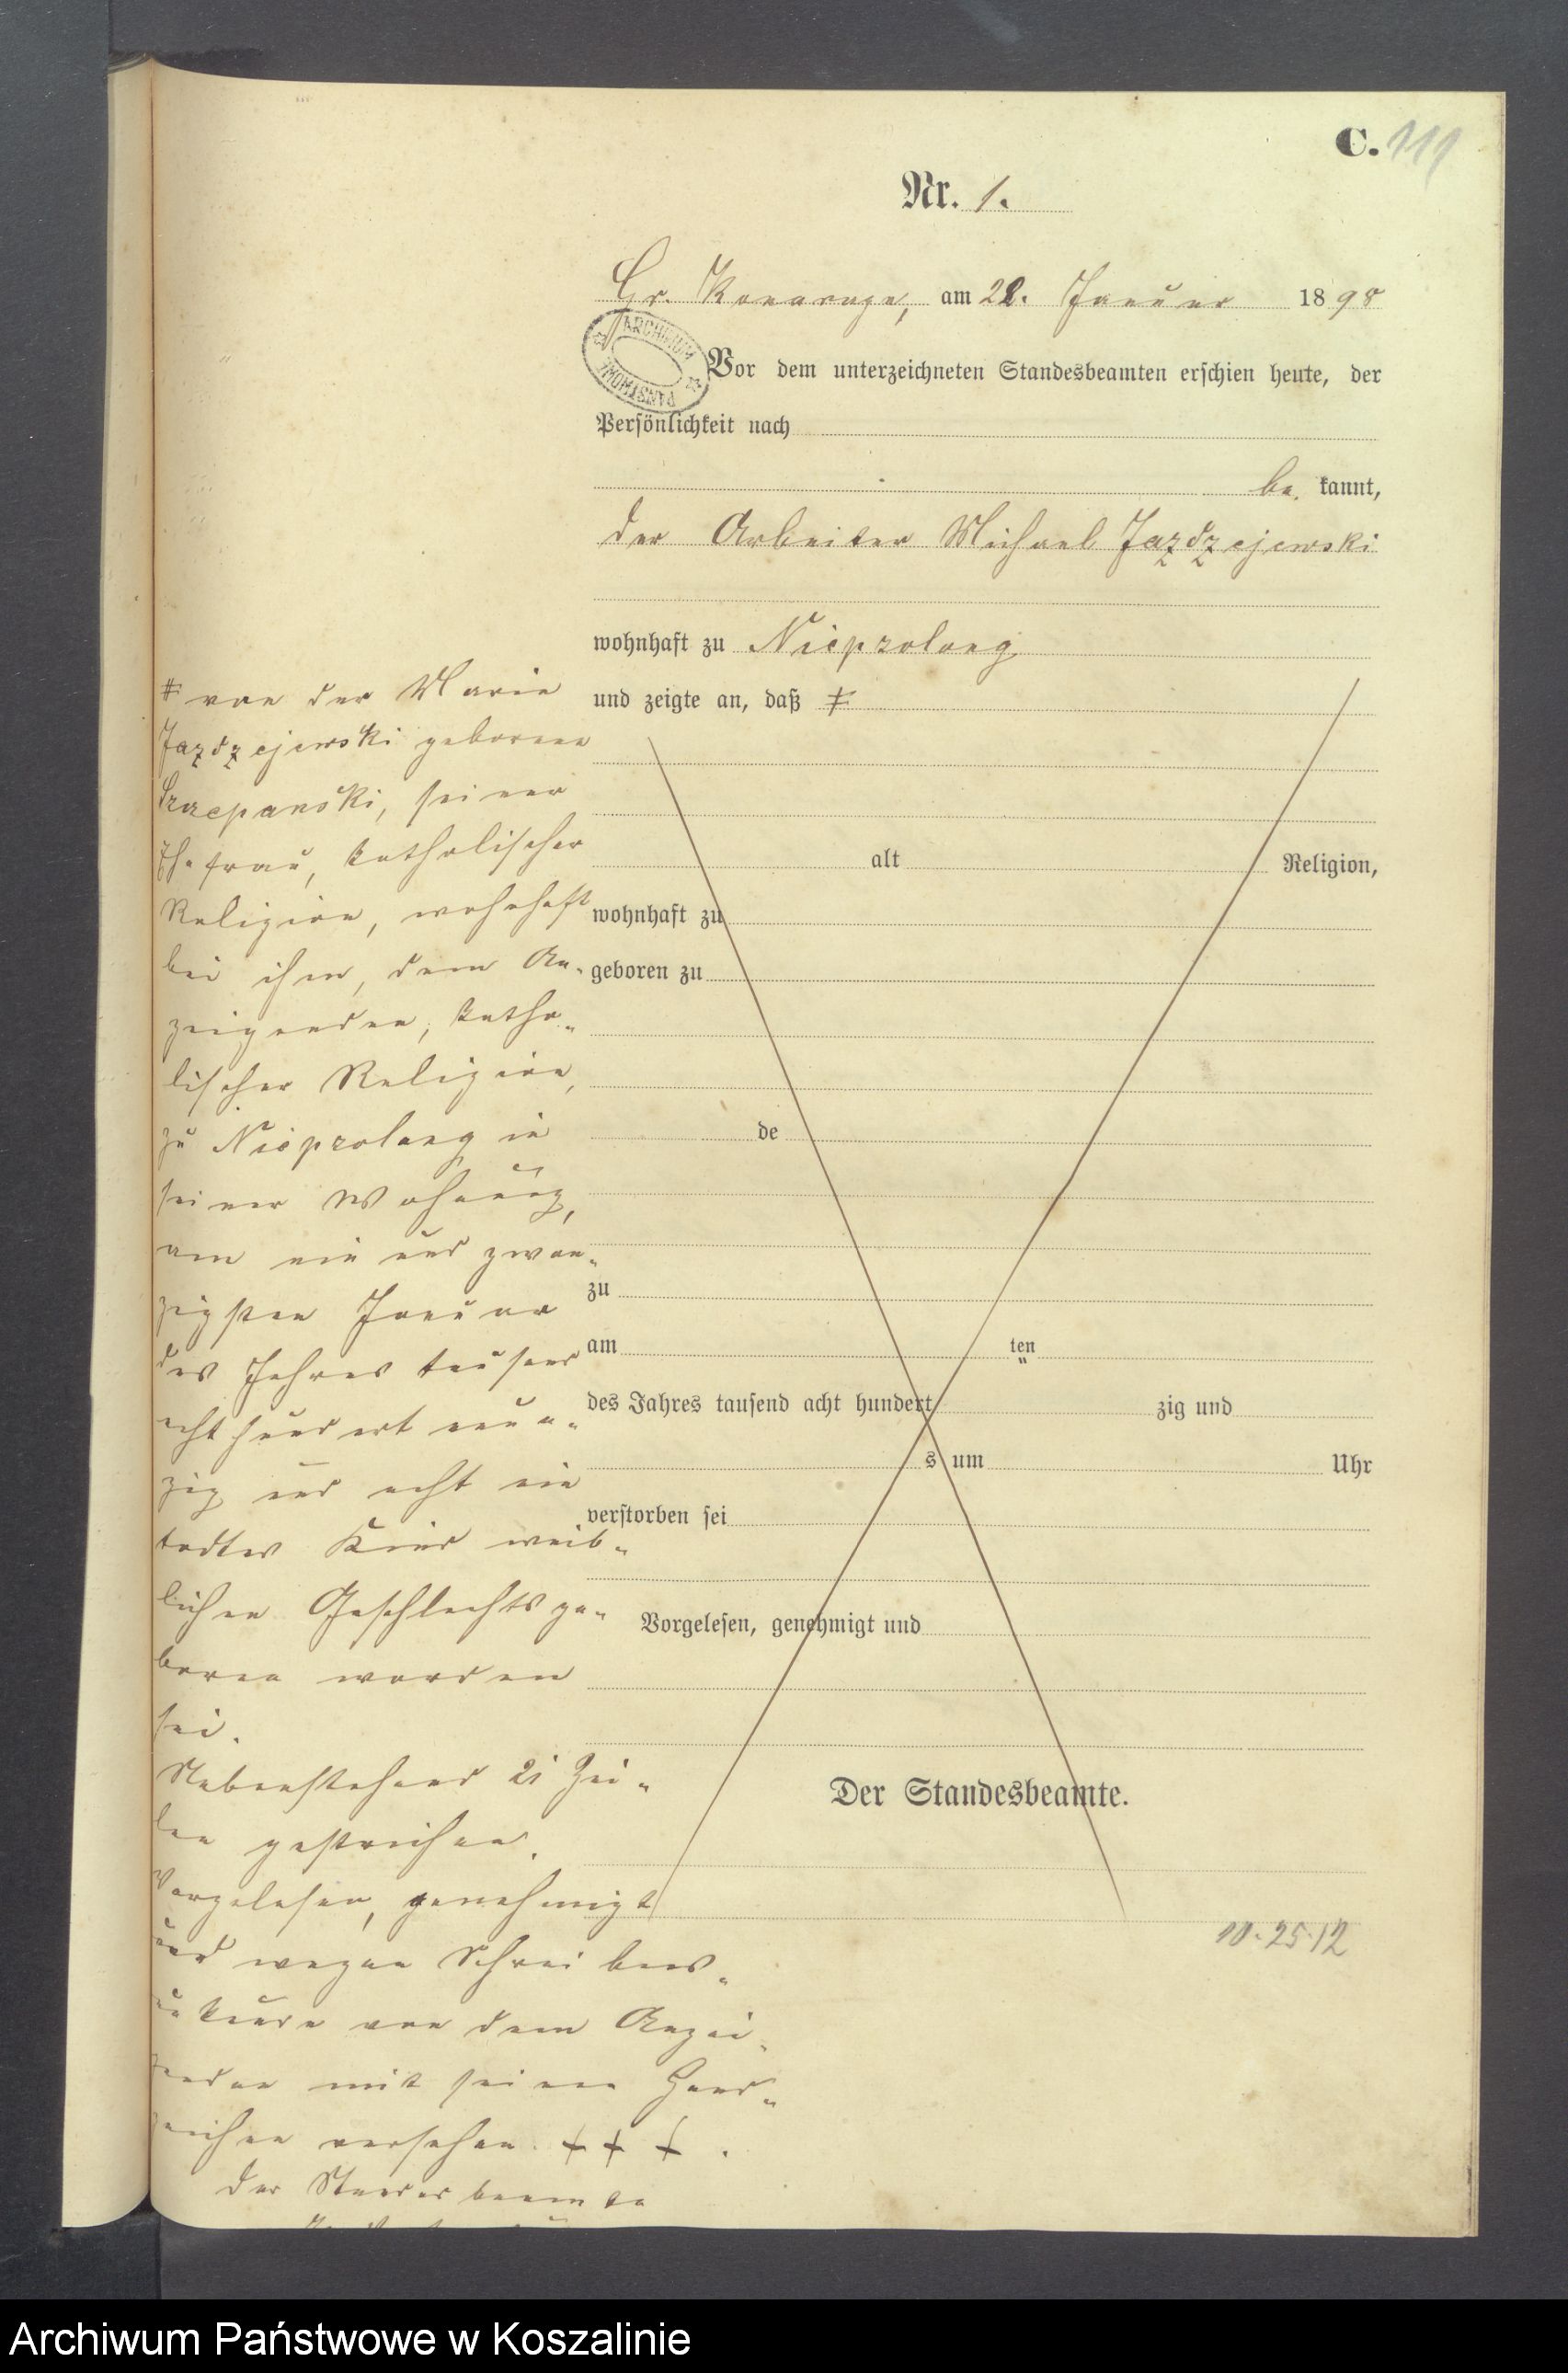 C. 111
Nr. 1.
Gr. Konarzyn, am 22. Januar 1898
ARCHIWUM PAŃSTWOWE
Vor dem unterzeichneten Standesbeamten erschien heute, der
Persönlichkeit nach
be kannt,
der Arbeiter Michael Jazdzejewski
wohnhaft zu Nieprzolong
und zeigte an, daß ǂ
ǂ von der Marie
Jazdzejewski geborene
Szczepanski, seiner
Ehefrau, katholischer
Religion, wohnhaft
bei ihm, dem An-
zeigenden, katho-
lischer Religion,
zu Nieprzolong in
seiner Wohnung,
am ein und zwan-
zigsten Januar
des Jahres tausend
acht hundert neun-
zig und acht ein
todtes Kind weib-
lichen Geschlechts ge-
boren worden
sei.
Nebenstehend 21 Zei-
len gestrichen.
Vorgelesen, genehmigt
und wegen Schreibens-
unkunde von dem Anzei-
genden mit seinem Hand-
zeichen versehen. + + + .
Der Standesbeamte
alt Religion,
wohnhaft zu
geboren zu
de
zu
am ten
des Jahres tausend acht hundert zig und
s um Uhr
verstorben sei
Vorgelesen, genehmigt und
Der Standesbeamte.
10.25.12
Archiwum Państwowe w Koszalinie